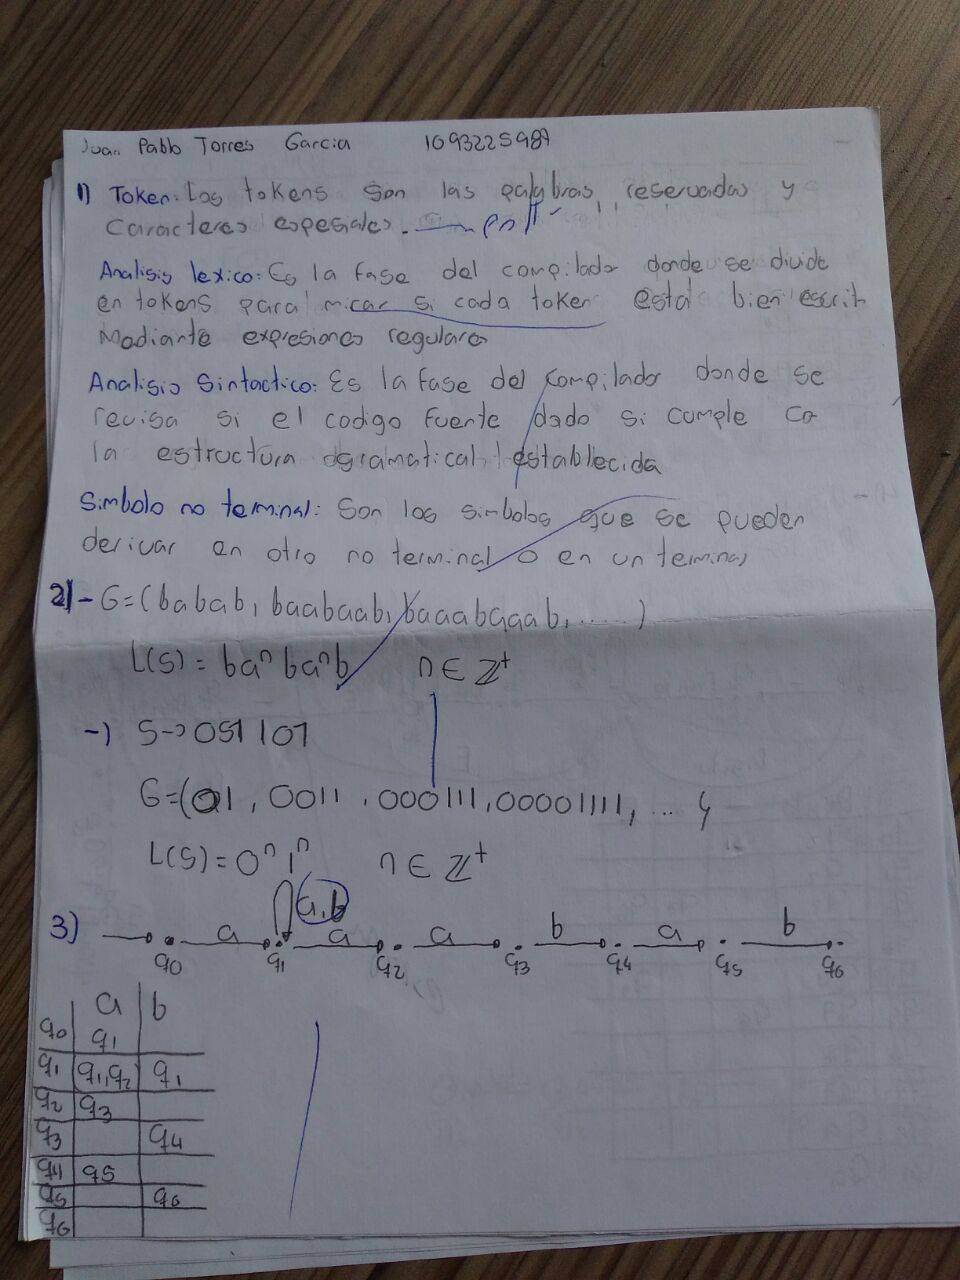 Juan Pablo Torres Garcia 1093225987
1) Token: Los tokens son las palabras, reservadas y
Caracteres espesiales.
Analisis lexico: Es la fase del compilador donde se divide
en tokens para mirar si cada token esta bien escrit
Mediante expresiones regulares
Analisis Sintactico: Es la fase del compilador donde se
revisa si el codigo fuente dado si cumple co
la estructura gramatical establecida
Simbolo no terminal: Son los simbolos que se pueden
derivar en otro no terminal o en un terminal
2) - G=(babab, baabaab, baaabaaab, .....)
L(S) = baⁿbaⁿb n ∈ Z⁺
-) S→0S1 | 01
G=(01, 0011, 000111, 00001111, ... )
L(S)=0ⁿ1ⁿ n ∈ Z⁺
a,b
3) a a a b a b
q0 q1 q2 q3 q4 q5 q6
a b
q0 q1
q1 q1,q2 q1
q2 q3
q3 q4
q4 q5
q5 q6
q6